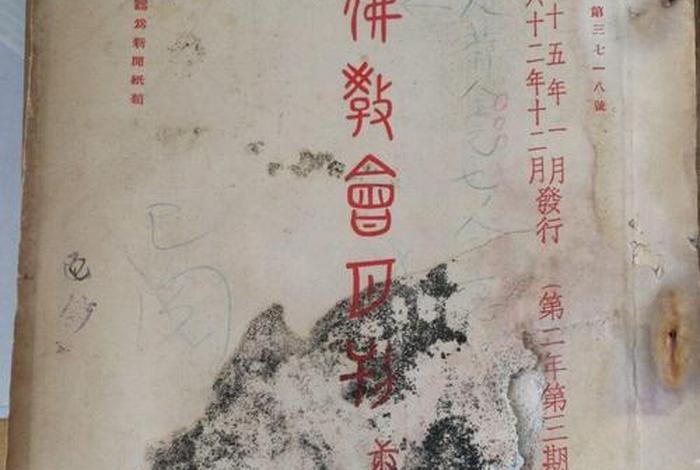 第三七一八號
十五年一月發行（第二年第三期
六十二年十二月
佛教會月刊
認爲新聞紙類
已閱